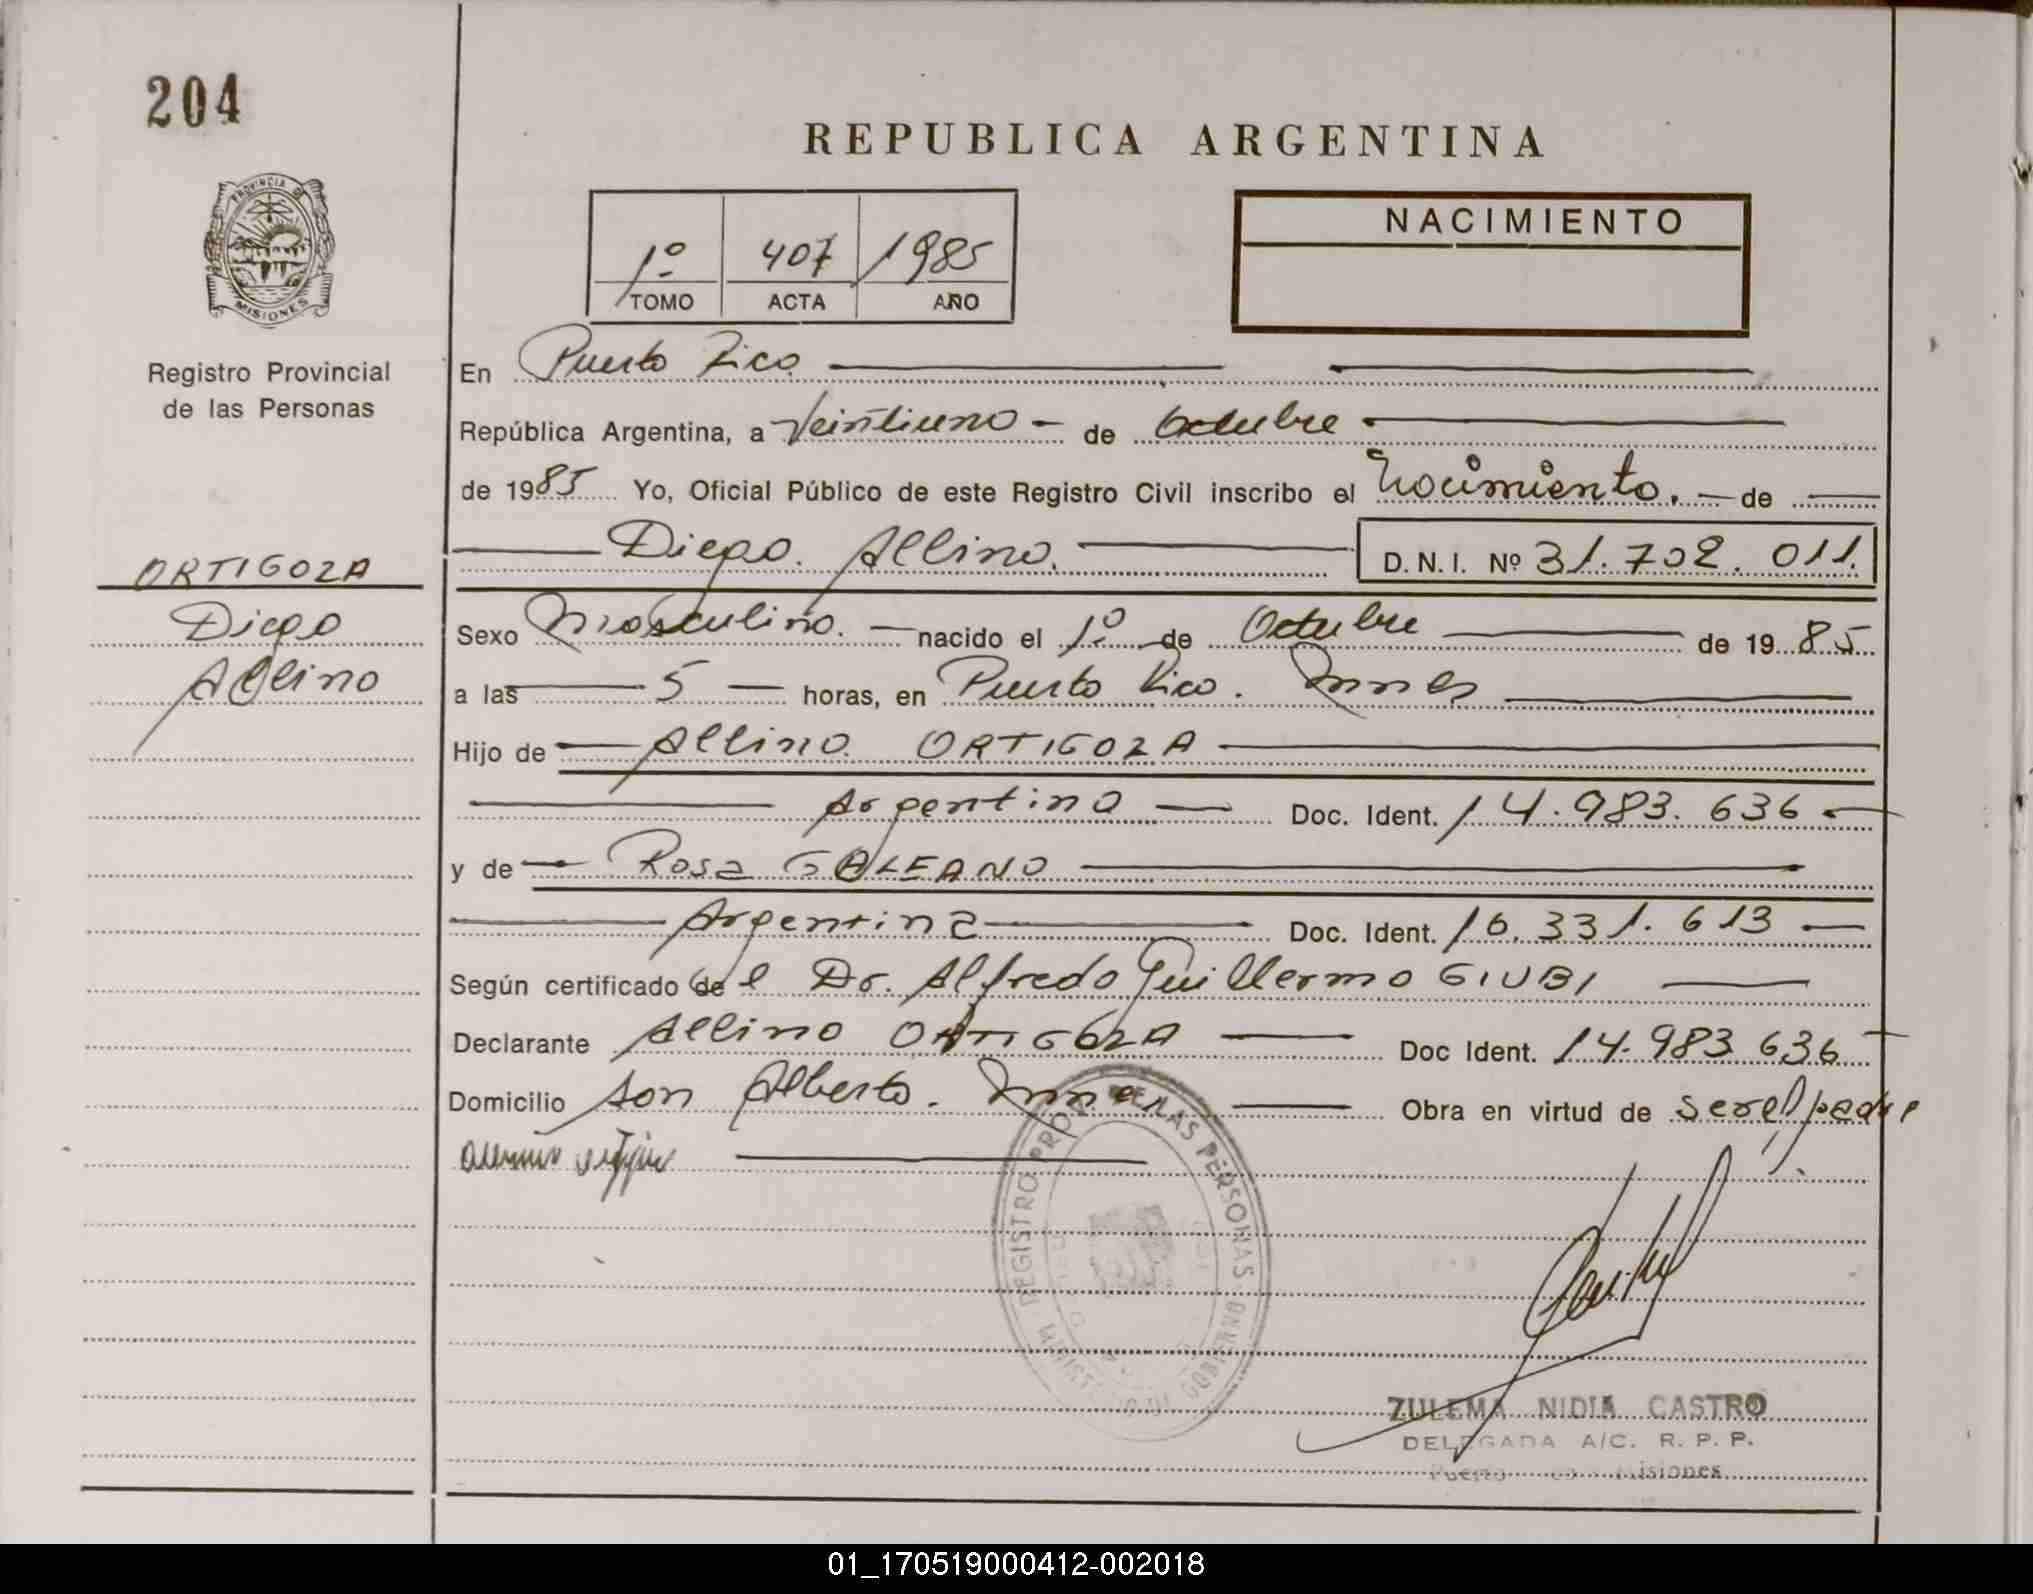 204
REPUBLICA ARGENTINA
PROVINCIA DE
MISIONES
Registro Provincial
de las Personas
1º 407 1985
TOMO ACTA AÑO
NACIMIENTO
En Puerto Rico
República Argentina, a Veintiuno - de Octubre
de 1985 Yo, Oficial Público de este Registro Civil inscribo el Nacimiento. - de
Diego Albino. D.N.I. Nº 31.702.011.
ORTIGOZA
Diego
Albino
Sexo Masculino. - nacido el 1º de Octubre de 1985
a las 5 horas, en Puerto Rico. Mnes
Hijo de Albino ORTIGOZA
Argentino Doc. Ident. 14.983.636
y de Rosa GALEANO
Argentina Doc. Ident. 16.331.613
Según certificado del Dr. Alfredo Guillermo GIUBI
Declarante Albino ORTIGOZA Doc Ident. 14.983.636
Domicilio San Alberto. Mnes Obra en virtud de ser el padre
REGISTRO PROV. DE LAS PERSONAS
MINISTERIO DE GOBIERNO
ZULEMA NIDIA CASTRO
DELEGADA A/C. R. P. P.
Puerto Misiones
01_170519000412-002018